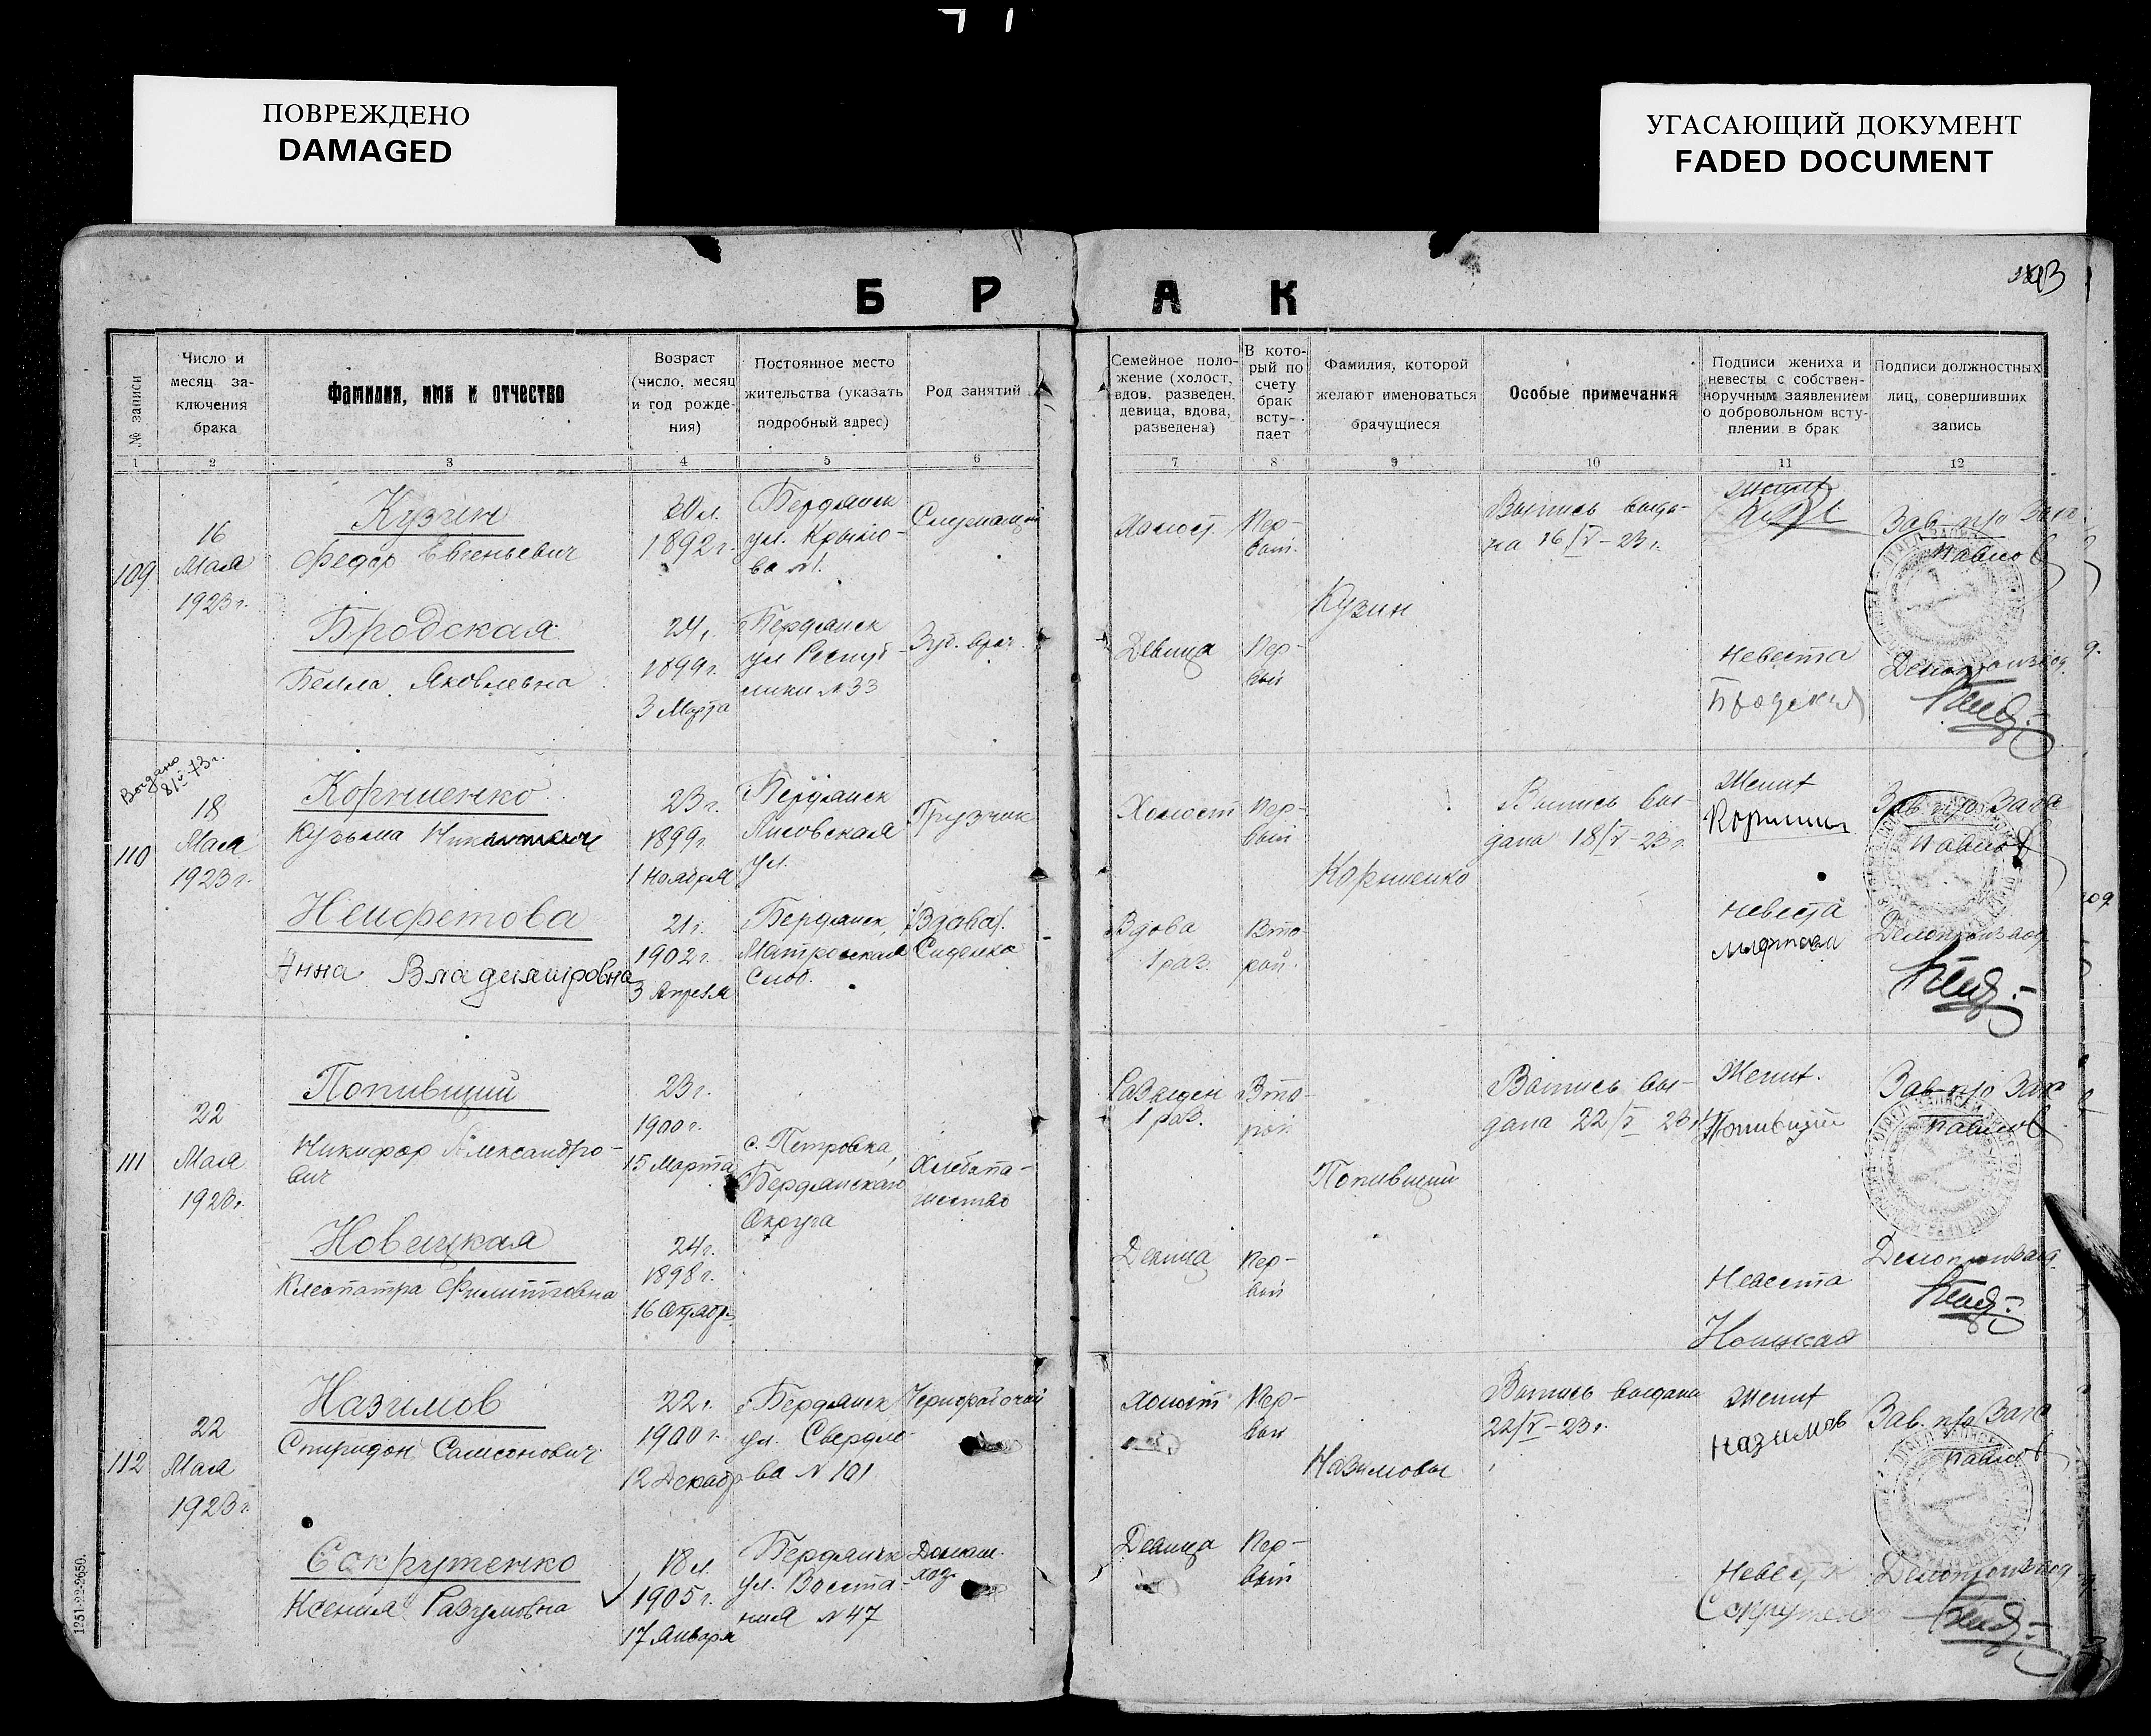 ПОВРЕЖДЕНО
DAMAGED
УГАСАЮЩИЙ ДОКУМЕНТ
FADED DOCUMENT
Б Р А К
№ записи
Число и
месяц за-
ключения
брака
Фамилия, имя и отчество
Возраст
(число, месяц
и год рожде-
ния)
Постоянное место
жительства (указать
подробный адрес)
Род занятий
Семейное поло-
жение (холост,
вдов, разведен,
девица, вдова,
разведена)
В кото-
рый по
счету
брак
всту-
пает
Фамилия, которой
желают именоваться
брачущиеся
Особые примечания
Подписи жениха и
невесты с собствен-
норучным заявлением
о добровольном всту-
плении в брак
Подписи должностных
лиц, совершивших
запись
1 2 3 4 5 6 7 8 9 10 11 12
109
16
Мая
1923 г.
Кузин
Федор Евгеньевич
30 л.
1892 г.
Бердянск
ул. Крыло-
ва №1.
Служащий
Холост.
Пер-
вый.
Выпись выда-
на 16/V-23 г.
Жених
Зав. п/о Загс
Павлов
Кузин
Бродская
Белла Яковлевна
24 г.
1899 г.
3 Марта
Бердянск
ул Респуб-
лики №33
Зуб. врач.
Девица
Пер-
вый
Невеста
Бродская
Делопроизвод.
Выдано
110
18
Мая
1923 г.
Корниенко
Кузьма
23 г.
1899 г.
1 Ноября
Бердянск
Лисовская
ул.
Грузчик
Холост
Пер-
вый
Выпись вы-
дана 18/V-23 г.
Жених
Зав. п/о Загс
Павлов
Корниенко
Анна Владимировна
21 г.
1902 г.
3 Апреля
Бердянск,
Матросская
Слоб.
(Вдова).
Сиделка
Вдова
1 раз.
Вто-
рой.
Невеста
Делопроизвод
111
22
Мая
1923 г.
Попивщий
Никифор Александро-
вич
23 г.
1900 г.
15 Марта
с. Петровка,
Бердянского
Округа
Хлебопа-
шество
Разведен
1 раз.
Вто-
рой
Выпись вы-
дана 22/V 23 г.
Жених.
Попивщий
Зав. п/о Загс
Павлов
Попивщий
Новицкая
Клеопатра Филипповна
24 г.
1898 г.
16 Октябр.
Девица
Пер-
вый
Невеста
Делопроизвод.
112
22
Мая
1923 г.
Назимов
Спиридон Самсонович
22 г.
1900 г.
12 Декабр
г. Бердянск
ул. Свердло-
ва №101
Чернорабочий
Холост
Пер-
вый
Выпись выдана
22/V-23 г.
Жених
Назимов
Зав. п/о Загс
Павлов
Назимовы
Сокрутенко
Ксения Разумовна
18 л.
1905 г.
17 Января
Бердянск
ул. Восста-
ния №47
Домаш.
хоз.
Девица
Пер-
вый
Невеста
Делопроизвод
1251-22-2650.